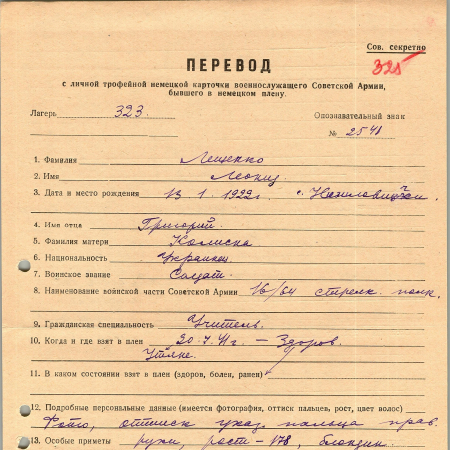 Сов. секретно
325
ПЕРЕВОД
с личной трофейной немецкой карточки военнослужащего Советской Армии,
бывшего в немецком плену.
Лагерь 323. Опознавательный знак
№ 2541
1. Фамилия Лещенко
2. Имя Леонид
3. Дата и место рождения 13 1 1922г. с.
4. Имя отца Григорий.
5. Фамилия матери Колиска
6. Национальность Украинец
7. Воинское звание Солдат.
8. Наименование войсковой части Советской Армии 16/64 стрелк. полк.
9. Гражданская специальность Учитель.
10. Когда и где взят в плен 20.7.41г. – Здоров.
11. В каком состоянии взят в плен (здоров, болен, ранен)
12. Подробные персональные данные (имеется фотография, оттиск пальцев, рост, цвет волос)
Фото, оттиск указ. пальца прав.
13. Особые приметы руки, рост – 178, блондин.